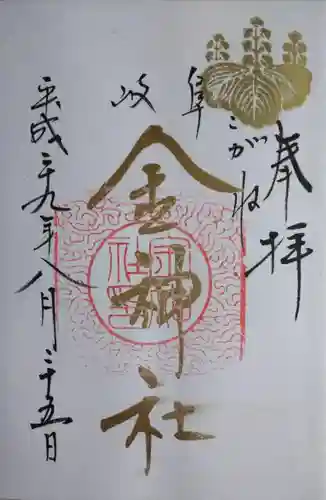 奉拝
こがね
岐阜
金神社
平成二十九年八月二十五日